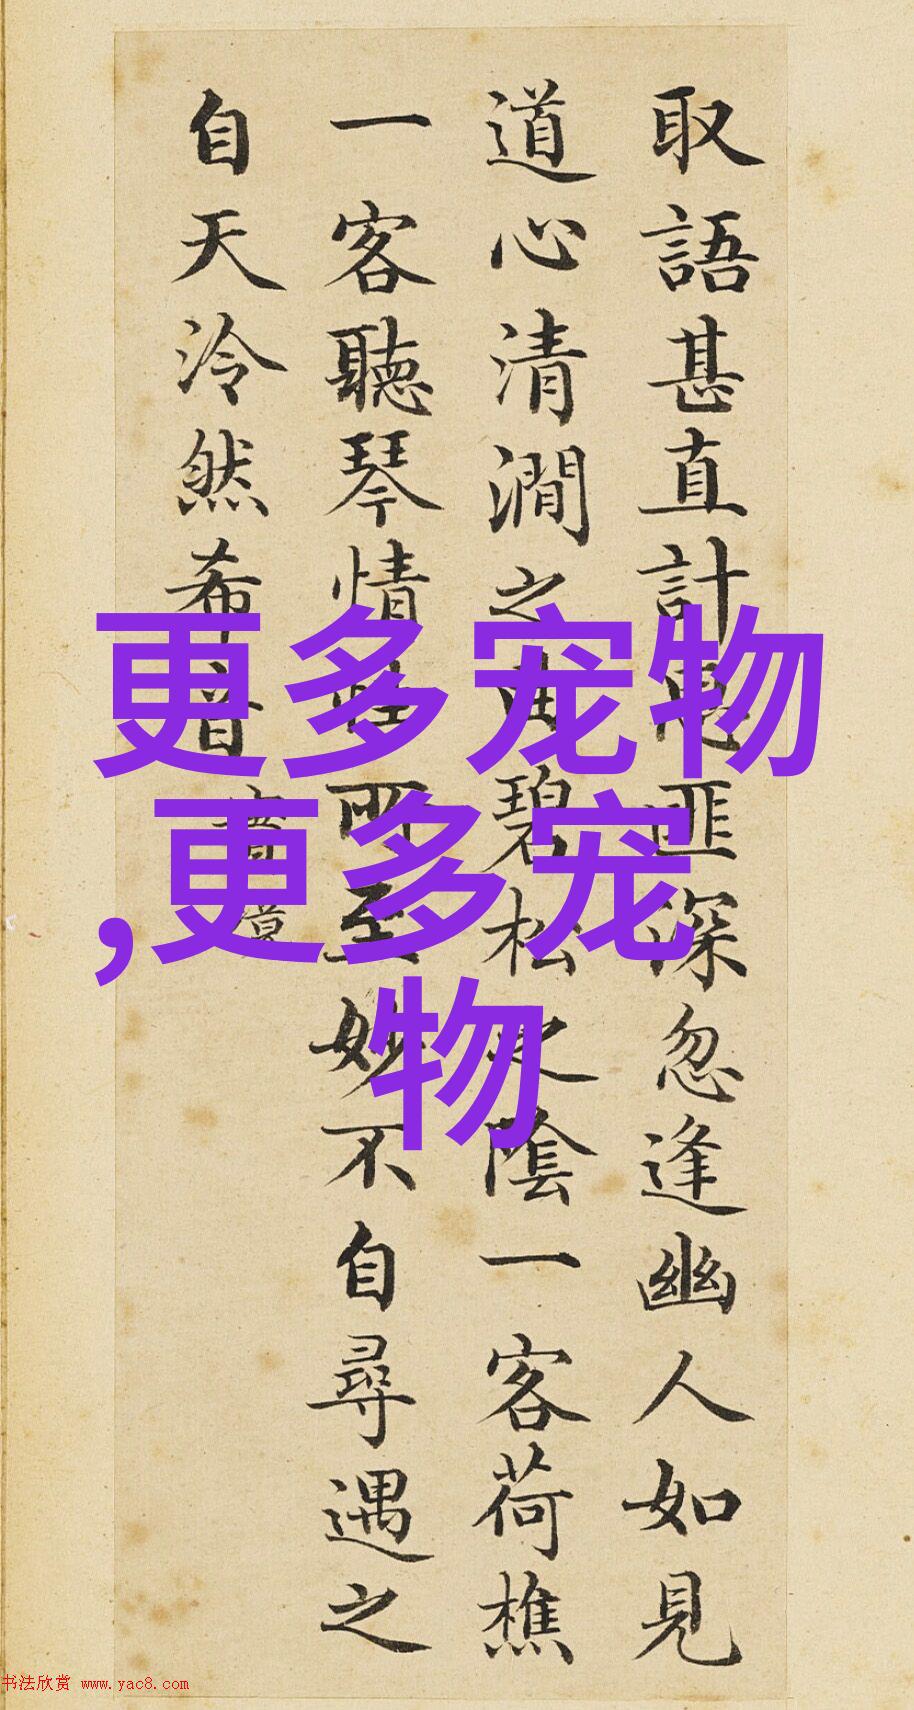 取語甚直計思匪深忽逢幽人如見
道心清澗之曲碧松之陰一客荷樵
一客聽琴情性所至妙不自尋遇之
自天泠然希音
更多宠物
,更多宠
物
书法欣赏 www.yac8.com